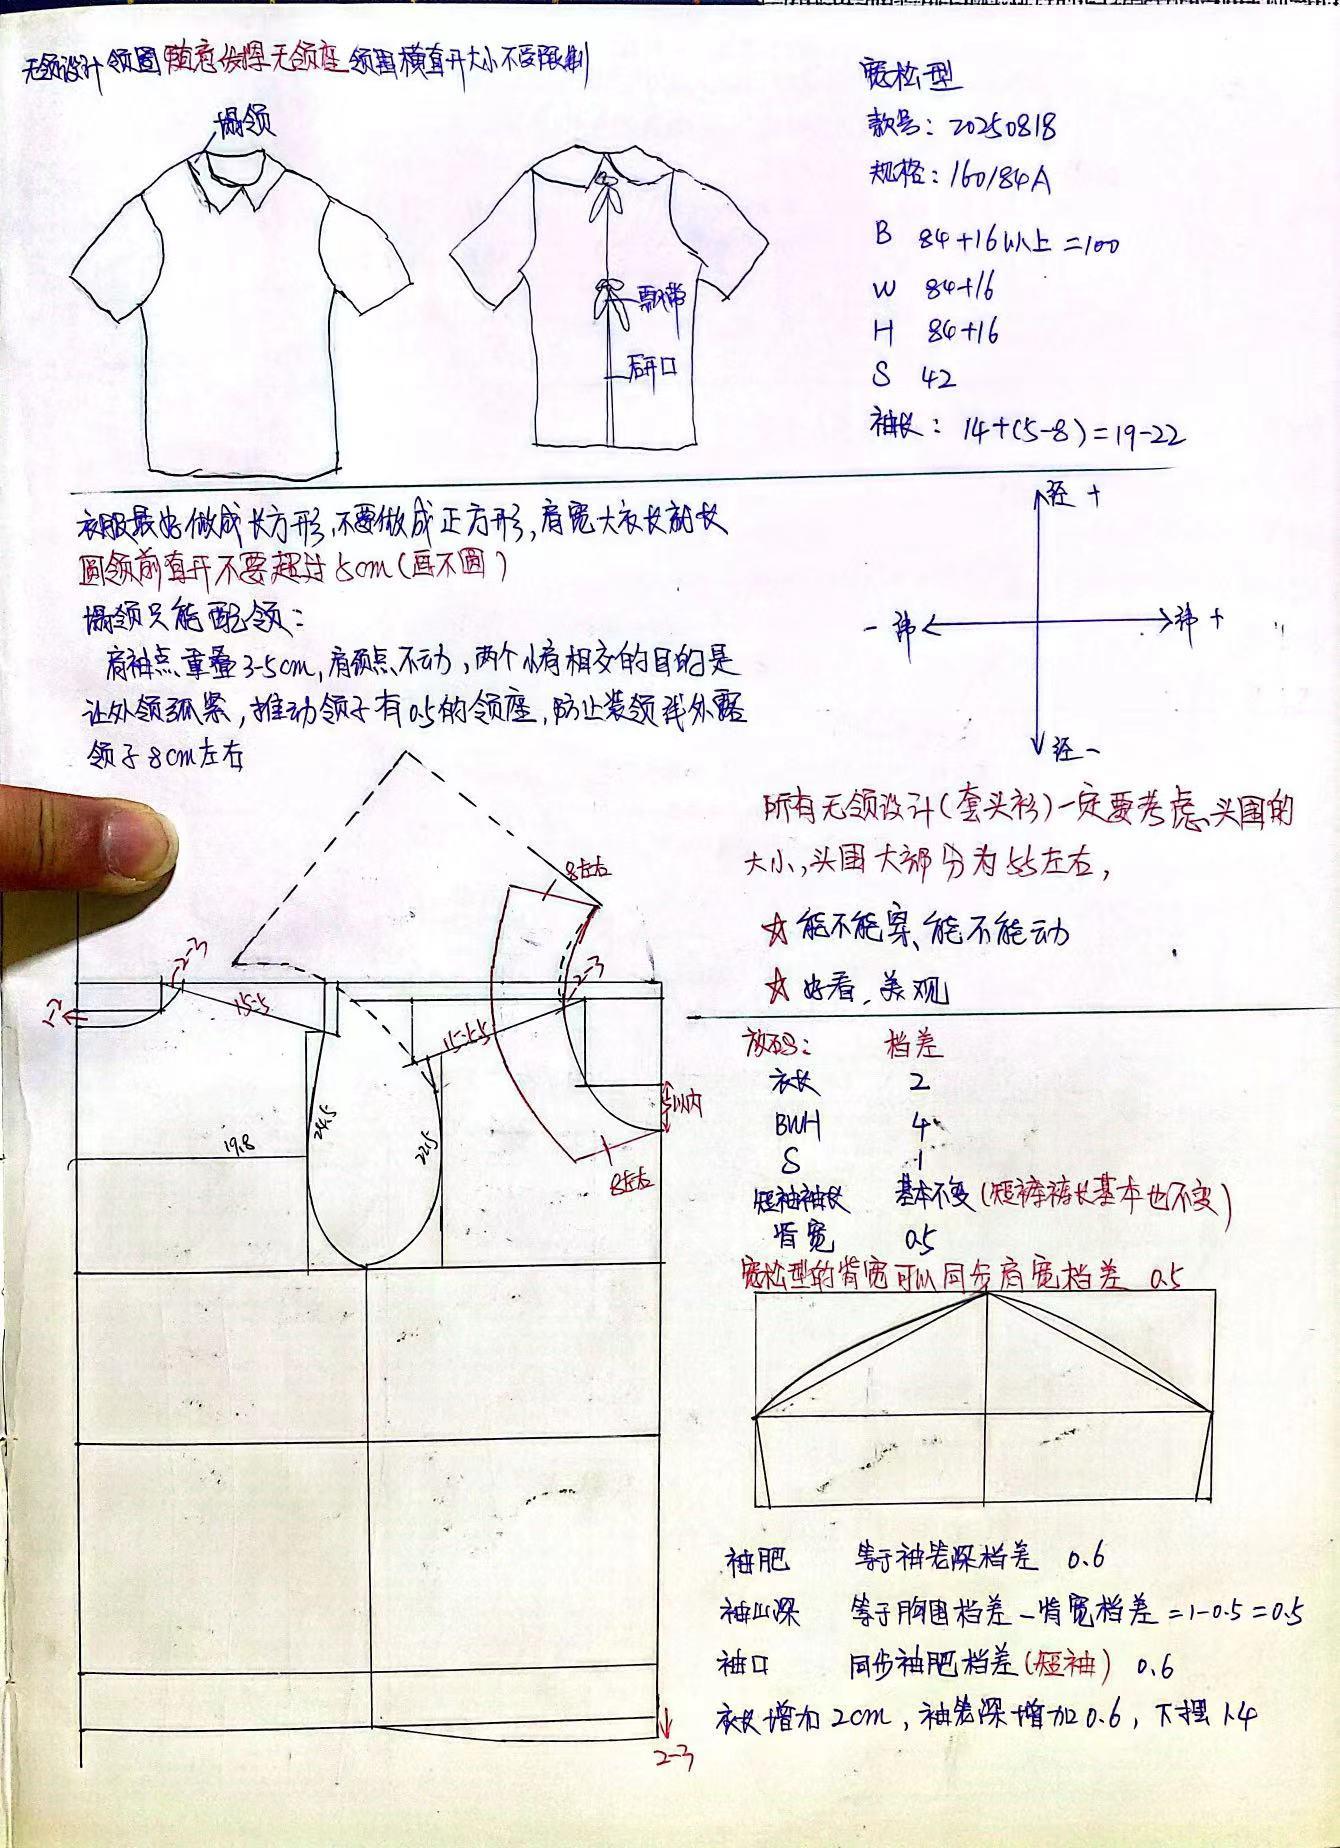 无领设计 领围随意发挥无领座 领围横直开大小不受限制
塌领
飘带
后开口
宽松型
款号：20250818
规格：160/84A
B 84+16以上=100
W 84+16
H 84+16
S 42
袖长：14+(5-8)=19-22
衣服最好做成长方形,不要做成正方形,肩宽大衣长就长
圆领前直开不要超过5cm(画不圆)
塌领只能配领：
肩袖点重叠3-5cm,肩颈点不动,两个小肩相交的目的是
让外领弧紧,推动领子有0.5的领座,防止装领线外露
领子8cm左右
径 +
- 纬
纬 +
径 -
所有无领设计(套头衫)一定要考虑头围的
大小,头围大部分为55左右,
☆ 能不能穿、能不能动
☆ 好看、美观
8左右
2-3
2-3
1-2
15.5
15.5
5以内
24.5
22.5
19.8
8左右
2-3
放码： 档差
衣长 2
BWH 4
S 1
短袖袖长 基本不变(短裤裤长基本也不变)
背宽 0.5
宽松型的背宽可以同步肩宽档差 0.5
袖肥 等于袖笼深档差 0.6
袖山深 等于胸围档差-背宽档差=1-0.5=0.5
袖口 同步袖肥档差(短袖) 0.6
衣长增加2cm,袖笼深增加0.6,下摆1.4